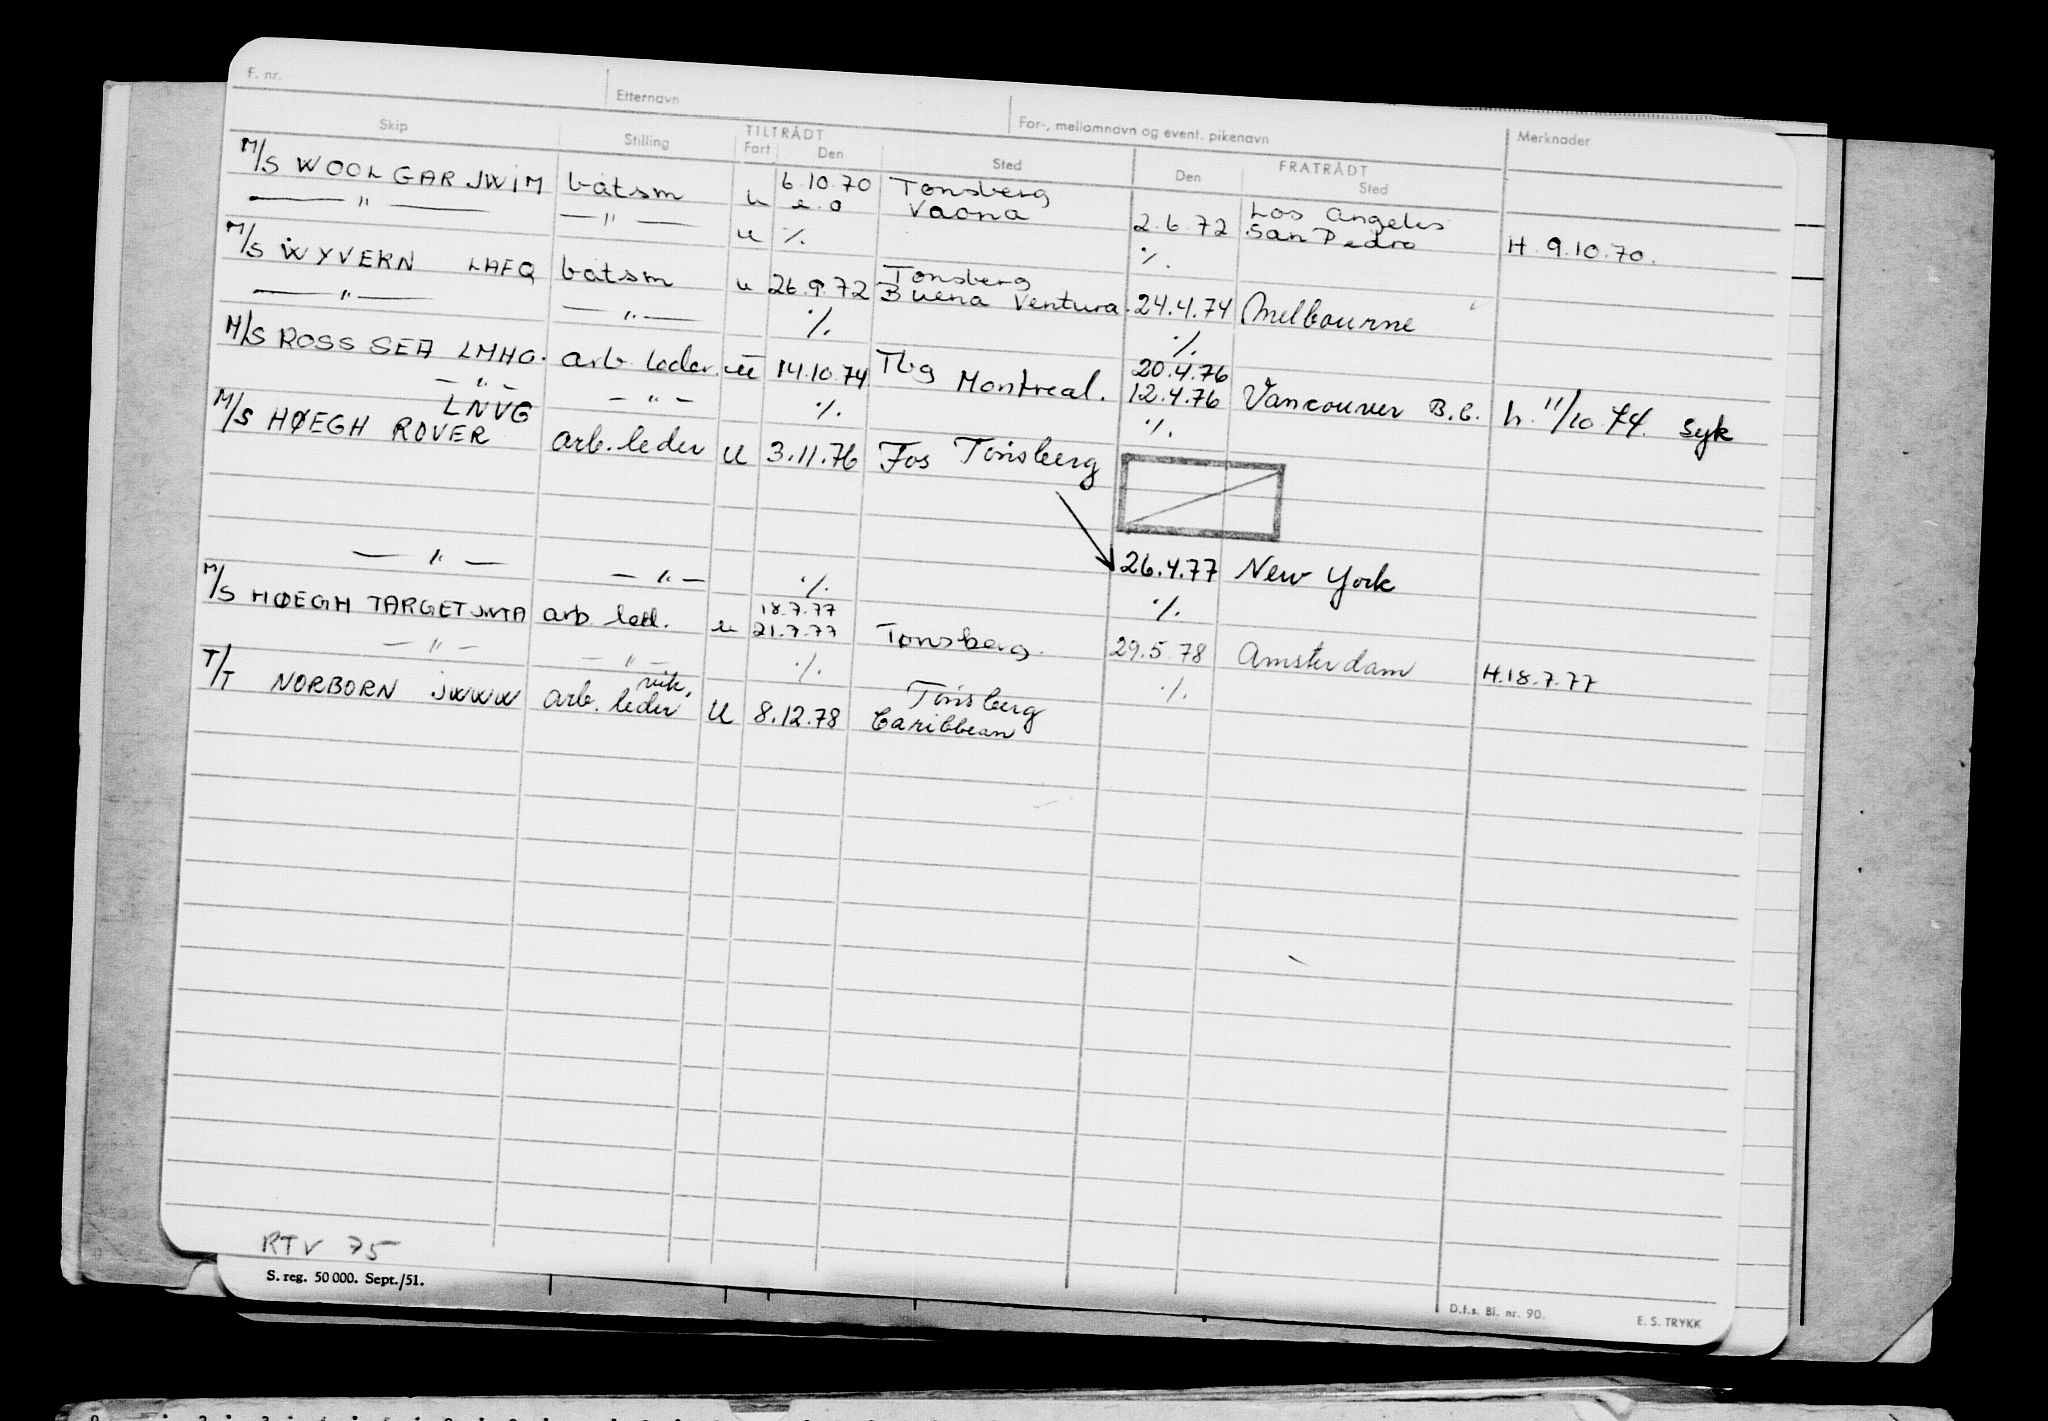 F. nr. Etternavn For-, mellomnavn og event. pikenavn Merknader
Skip Stilling TILTRÅDT Sted FRATRÅDT
Fart Den Den Sted
M/S WOOLGAR JWIM båtsm u 6.10.70 Tønsberg Los Angeles
— " — — " — u Vaona 2.6.72 San Pedro H. 9.10.70.
u ·/. ·/.
M/S WYVERN LAFQ båtsm u 26.9.72 Tønsberg
— " — — " — Buena Ventura. 24.4.74 Melbourne
·/. ·/.
M/S ROSS SEA LMHO. arb. leder. u 14.10.74 Tbg Montreal. 20.4.76
12.4.76 Vancouver B.C. h. 11/10 74. Syk
— " — — " — ·/. ·/.
LNVG
M/S HØEGH ROVER arb. leder U 3.11.76 Fos Tønsberg
26.4.77 New York
— " — — " — ·/. ·/.
M/S HØEGH TARGET JWTA arb. led. u 18.7.77
21.7.77 Tønsberg. 29.5.78 Amsterdam H.18.7.77
— " — — " — ·/. ·/.
vik.
T/T NORBORN JWWW arb. leder U 8.12.78 Tønsberg
Caribbean
RTV 75
S. reg. 50 000. Sept./51.
D.f.s. Bl. nr. 90. E. S. TRYKK